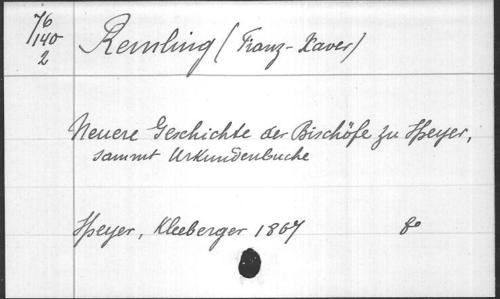 76
140
2
Remling (Franz-Xaver)
Neuere Geschichte der Bischöfe zu Speyer,
sammt Urkundenbuche
Speyer, Kleeberger 1867 8°